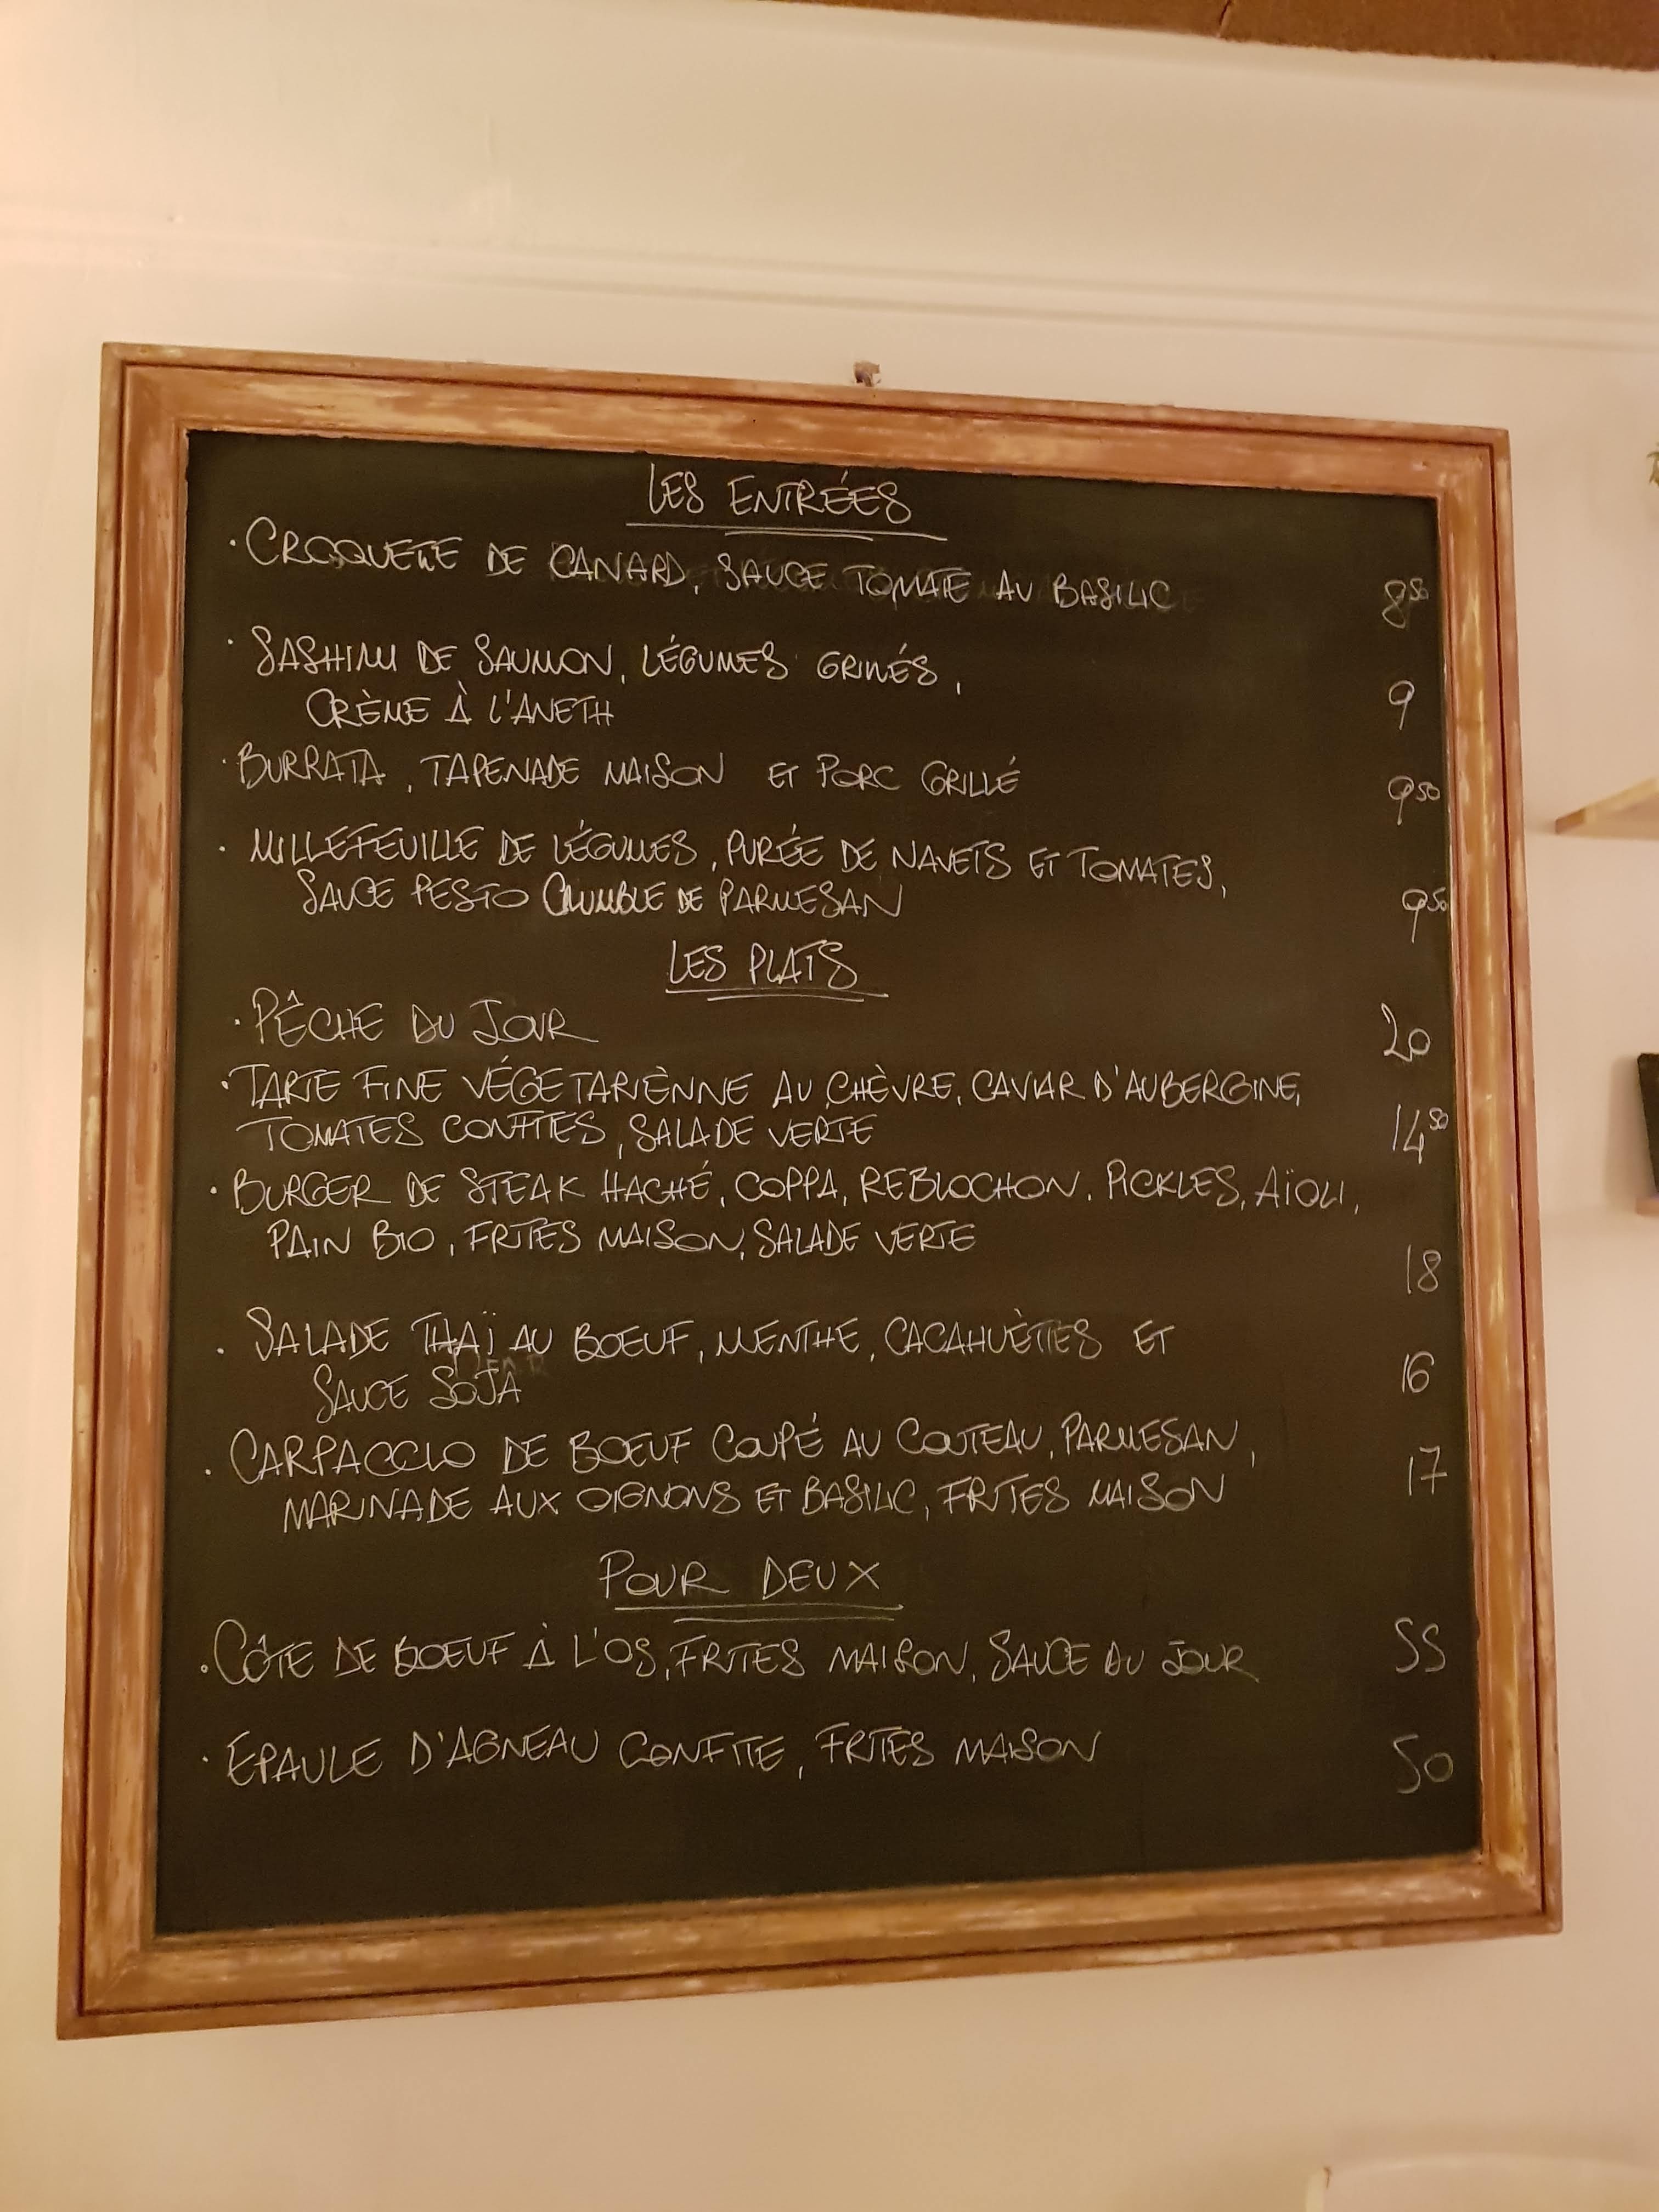 LES ENTRÉES
· CROQUETTE DE CANARD, SAUCE TOMATE AU BASILIC 8⁵⁰
· SASHIMI DE SAUMON, LÉGUMES GRILLÉS,
CRÈME À L'ANETH 9
· BURRATA, TAPENADE MAISON ET PORC GRILLÉ 9⁵⁰
· MILLEFEUILLE DE LÉGUMES, PURÉE DE NAVETS ET TOMATES,
SAUCE PESTO CRUMBLE DE PARMESAN 9⁵⁰
LES PLATS
· PÊCHE DU JOUR 20
· TARTE FINE VÉGETARIÈNNE AU CHÈVRE, CAVIAR D'AUBERGINE,
TOMATES CONFITES, SALADE VERTE 14⁵⁰
· BURGER DE STEAK HACHÉ, COPPA, REBLOCHON, PICKLES, AÏOLI,
PAIN BIO, FRITES MAISON, SALADE VERTE 18
· SALADE THAÏ AU BOEUF, MENTHE, CACAHUÈTTES ET
SAUCE SOJA 16
· CARPACCIO DE BOEUF COUPÉ AU COUTEAU, PARMESAN,
MARINADE AUX OIGNONS ET BASILIC, FRITES MAISON 17
POUR DEUX
· CÔTE DE BOEUF À L'OS, FRITES MAISON, SAUCE DU JOUR 55
· EPAULE D'AGNEAU CONFITE, FRITES MAISON 50